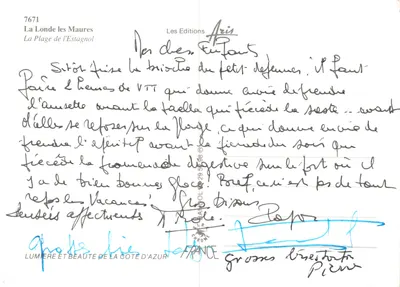 7671
La Londe les Maures
La Plage de l'Estagnol
Les Editions Aris
Mes chers Enfants
Sitôt prise la brioche du petit dejeuner, il faut
faire 2 heures de VTT qui donne envie de prendre
l'anusette avant la paella qui précède la sieste... avant
d'aller se reposer sur la plage, ce qui donne envie de
prendre l'apéritif avant le du soir qui
précède la promenade digestive sur le port où il
y a de bien bonnes glaces! Bref, ce n'est pas de tout
repos les vacances! Gros bisous
Pensées affectueuses Papy
grosses bises
Pierre
LUMIERE ET BEAUTE DE LA COTE D'AZUR
FRANCE